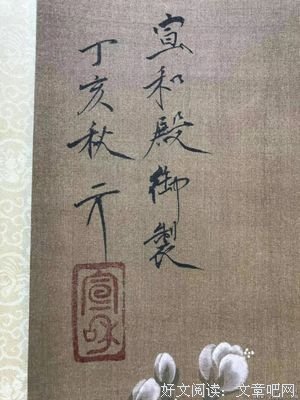 宣和殿御製
丁亥秋
宣和
好文阅读：文章吧网